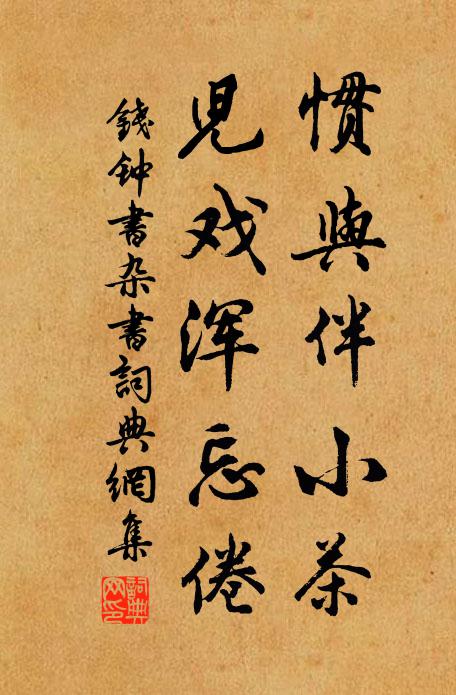 慣與伴小茶
兒戏浑忘倦
錢钟書杂書詞典網集
詞典网印